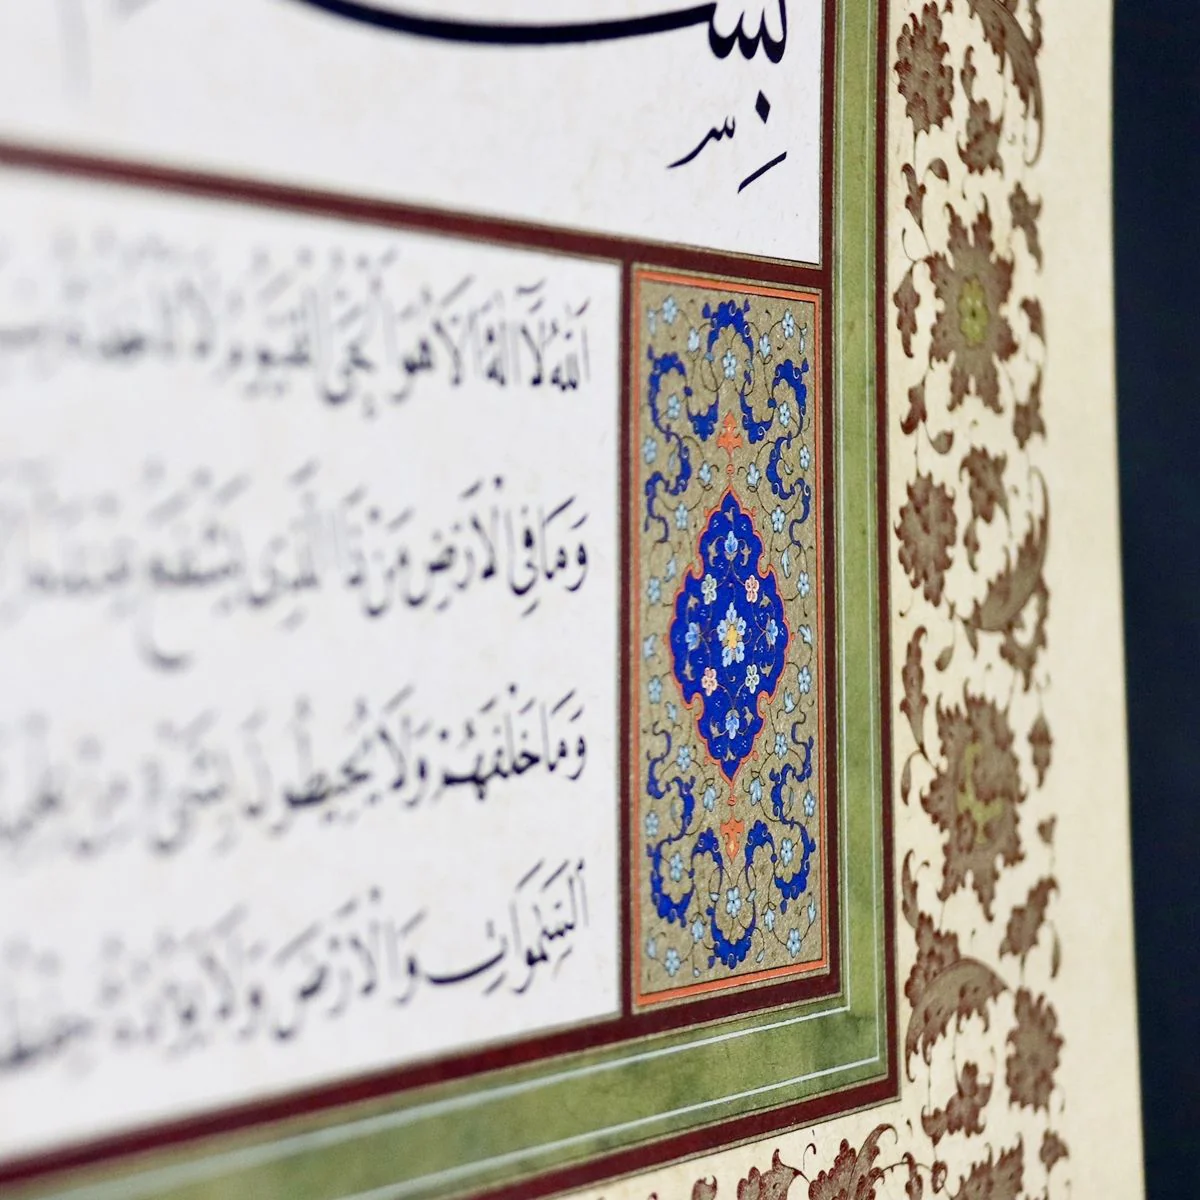 بِسْ
اَللّٰهُ لَٓا اِلٰهَ اِلَّا هُوَ اَلْحَىُّ الْقَيُّومُ لَا تَأْخُذُهُ
وَمَا فِى الْاَرْضِ مَنْ ذَا الَّذِى يَشْفَعُ عِنْدَهُ
وَمَا خَلْفَهُمْ وَلَا يُحِيطُونَ بِشَىْءٍ مِنْ
اَلسَّمٰوَاتِ وَالْاَرْضَ وَلَا يَؤُدُهُ حِفْظُهُمَا